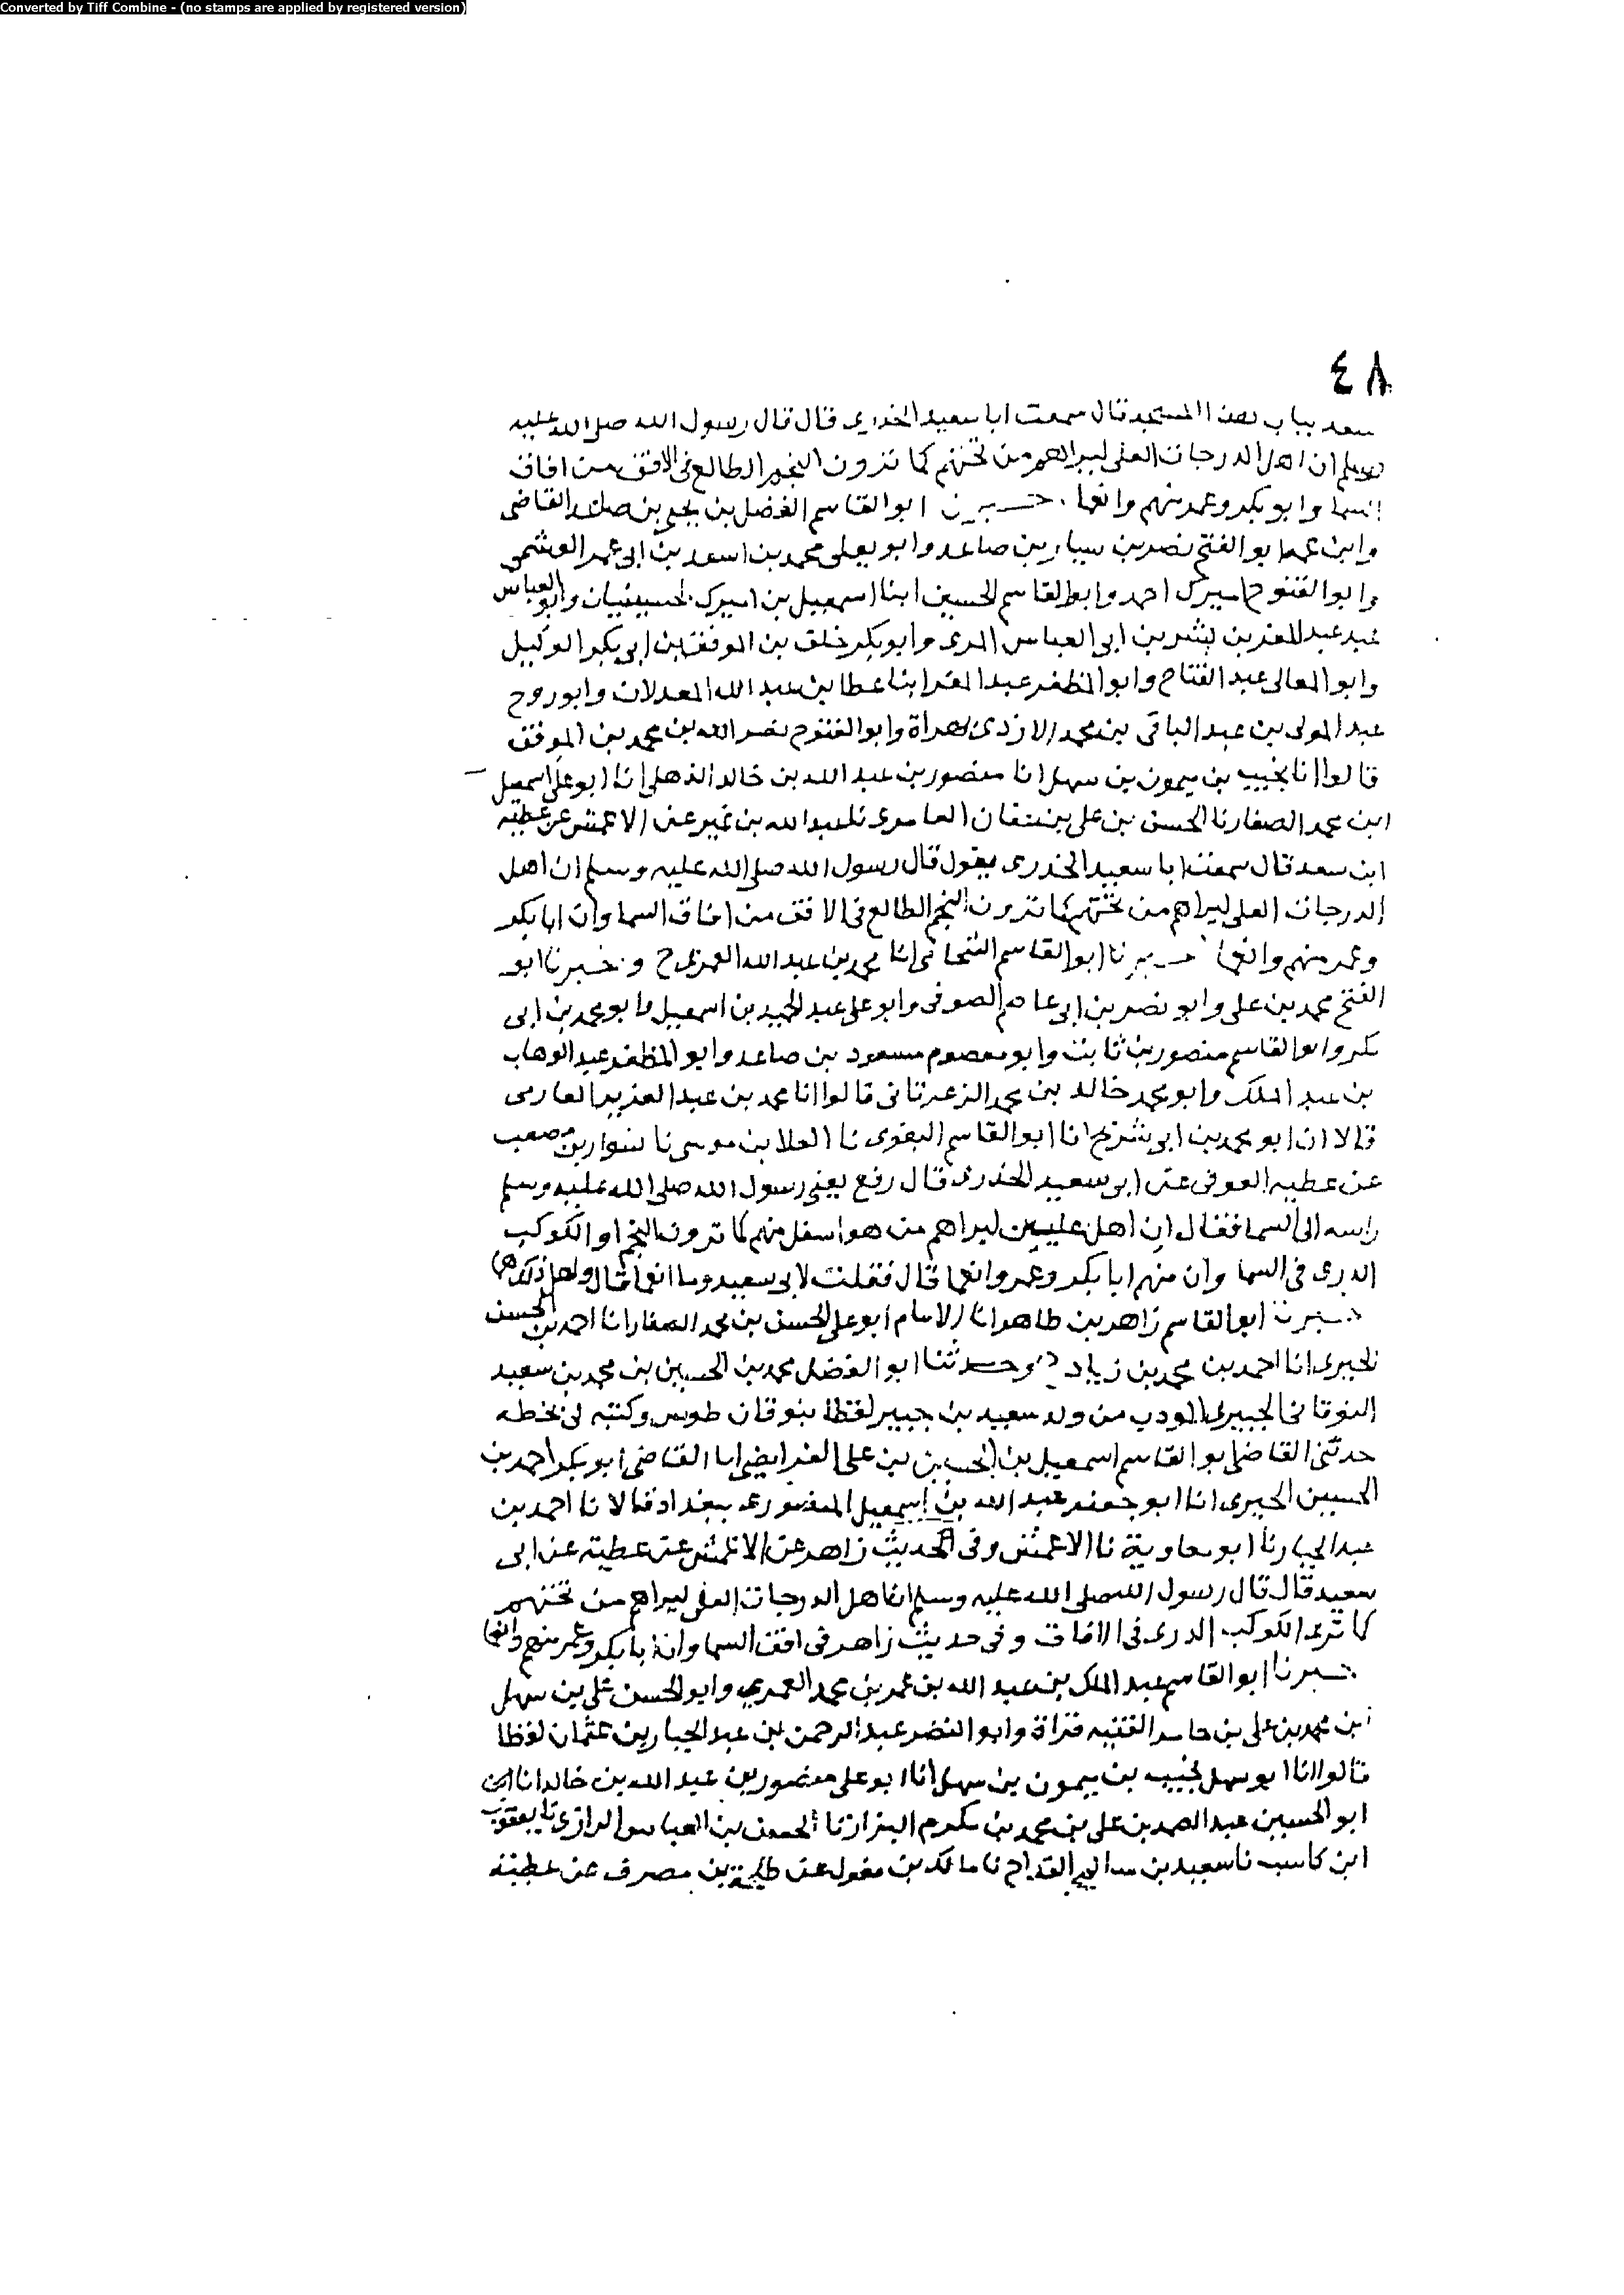 Converted by Tiff Combine - (no stamps are applied by registered version)
٤٨
سعد بباب هذا المسجد قال سمعت ابا سعيد الخدرى قال قال رسول الله صلى الله عليه
وسلم ان اهل الدرجات العلى ليراهم من تحتهم كما ترون النجم الطالع فى الافق من افاق
السما وابو بكر وعمر منهم وانعما اخبرنا ابو القاسم الفضل بن يحيى بن صاعد القاضى
وابن عمه ابو الفتح نصر بن سيار بن صاعد وابو يعلى محمد بن اسعد بن ابى عمر العبشمى
وابو الفتوح اميرك احمد وابو القاسم الحسين ابنا اسمعيل بن اميرك الحسينيان وابو العباس
عبد المعز بن بشر بن ابى العباس المرى وابو بكر خلف بن الموفق بن ابى بكر الوكيل
وابو المعالى عبد الفتاح وابو المظفر عبد المعز ابنا عطا بن عبد الله المعدلان وابو روح
عبد المولى بن عبد الباقى بن محمد الازدى بهراة وابو الفتوح نصر الله بن محمد بن الموفق
قالوا انا نجيب بن ميمون بن سهل انا منصور بن عبد الله بن خالد الذهلى انا ابو على اسمعيل
ابن محمد الصفار نا الحسن بن على بن عفان العامرى نا عبد الله بن نمير عن الاعمش عن عطية
ابن سعد قال سمعت ابا سعيد الخدرى يقول قال رسول الله صلى الله عليه وسلم ان اهل
الدرجات العلى ليراهم من تحتهم كما ترون النجم الطالع فى الافق من افاق السما وان ابا بكر
وعمر منهم وانعما اخبرنا ابو القاسم الشحامى انا محمد بن عبد الله العمرى ح واخبرنا ابو
الفتح محمد بن على وابو نصر بن ابى عاصم الصوفى وابو على عبد الحميد بن اسمعيل وابو محمد بن ابى
بكر وابو القاسم منصور بن ثابت وابو معصوم مسعود بن صاعد وابو المظفر عبد الوهاب
بن عبد الملك وابو محمد خالد بن محمد الزعرتانى قالوا انا محمد بن عبد العزيز الفارسى
قالا انا ابو محمد بن ابى شريح انا ابو القاسم البغوى نا العلا بن موسى نا سوار بن مصعب
عن عطيه العوفى عن ابى سعيد الخدرى قال رفع يعنى رسول الله صلى الله عليه وسلم
راسه الى السما فقال ان اهل عليين ليراهم من هو اسفل منهم كما ترون النجم او الكوكب
الدرى فى السما وان منهم ابا بكر وعمر وانعما قال فقلت لابى سعيد وما انعما قال واهل ذلك هما
اخبرنا ابو القاسم زاهر بن طاهر انا الامام ابو على الحسن بن محمد الصفار انا احمد بن الحسن
الحيرى انا احمد بن محمد بن زياد ح وحدثنا ابو الفضل محمد بن الحسين بن محمد بن سعيد
النوقانى الجبيرى المودب من ولد سعيد بن جبير لفظا بنوقان طوس وكتبه لى بخطه
حدثنى القاضى ابو القاسم اسمعيل بن الحسين بن على الفرايضى انا القاضى ابو بكر احمد بن
الحسين الحيرى انا ابو جعفر عبد الله بن اسمعيل المنصورى ببغداد قالا نا احمد بن
عبد الجبار نا ابو معاوية نا الاعمش وفى حديث زاهر عن الاعمش عن عطيه عن ابى
سعيد قال قال رسول الله صلى الله عليه وسلم ان اهل الدرجات العلى ليراهم من تحتهم
كما ترى الكوكب الدرى فى الافاق وفى حديث زاهر فى افق السما وان ابا بكر وعمر منهم وانعما
اخبرنا ابو القاسم عبد الملك بن عبد الله بن عمر بن محمد العمرى وابو الحسن على بن سهل
ابن محمد بن على بن حامد الفقيه قراة وابو النضر عبد الرحمن بن عبد الجبار بن عثمان لفظا
قالوا انا ابو سهل نجيب بن ميمون بن سهل انا ابو على منصور بن عبد الله بن خالد انا
ابو الحسين عبد الصمد بن على بن محمد بن مكرم البزاز نا الحسن بن العباس الرازى نا يعقوب
ابن كاسب نا سعيد بن سالم القداح نا مالك بن مغول عن طلحة بن مصرف عن عطية